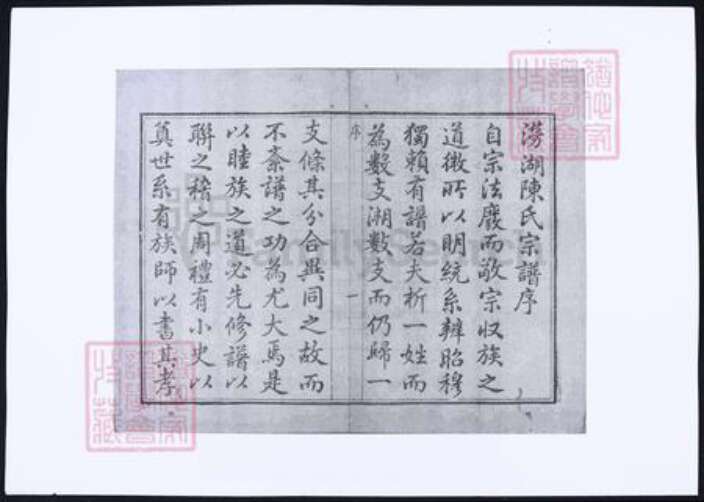 澇湖陳氏宗譜序
自宗法廢而敬宗收族之
道微所以明統系辨昭穆
獨賴有譜若夫析一姓而
為數支溯數支而仍歸一
序 一
支條其分合異同之故而
不紊譜之功為尤大焉是
以睦族之道必先修譜以
聯之稽之周禮有小史以
奠世系有族師以書其孝
FamilySearch